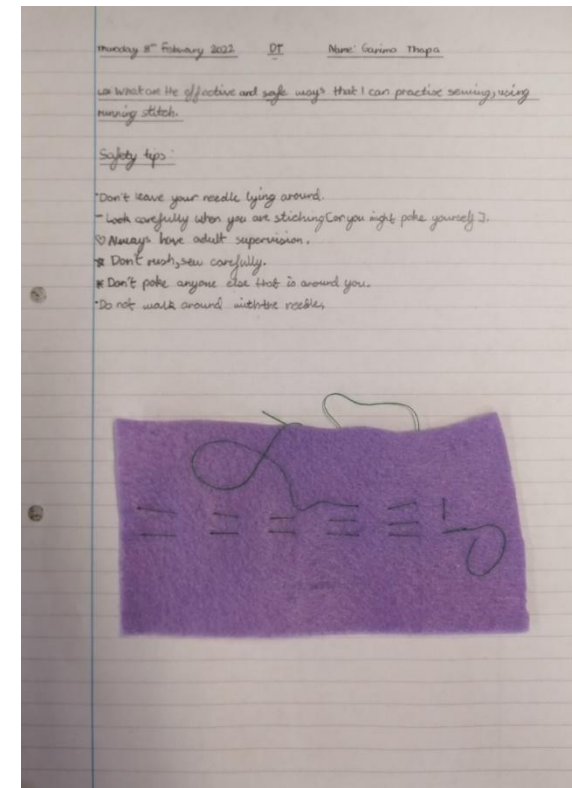 Thursday 8th February 2022 DT Name: Garima Thapa
What are the effective and safe ways that I can practise sewing, using
running stitch.
Safety tips:
Don't leave your needle lying around.
- Look carefully when you are stiching [or you might poke yourself].
♡ Always have adult supervision.
☆ Don't rush, sew carefully.
* Don't poke anyone else that is around you.
Do not walk around with the needle.